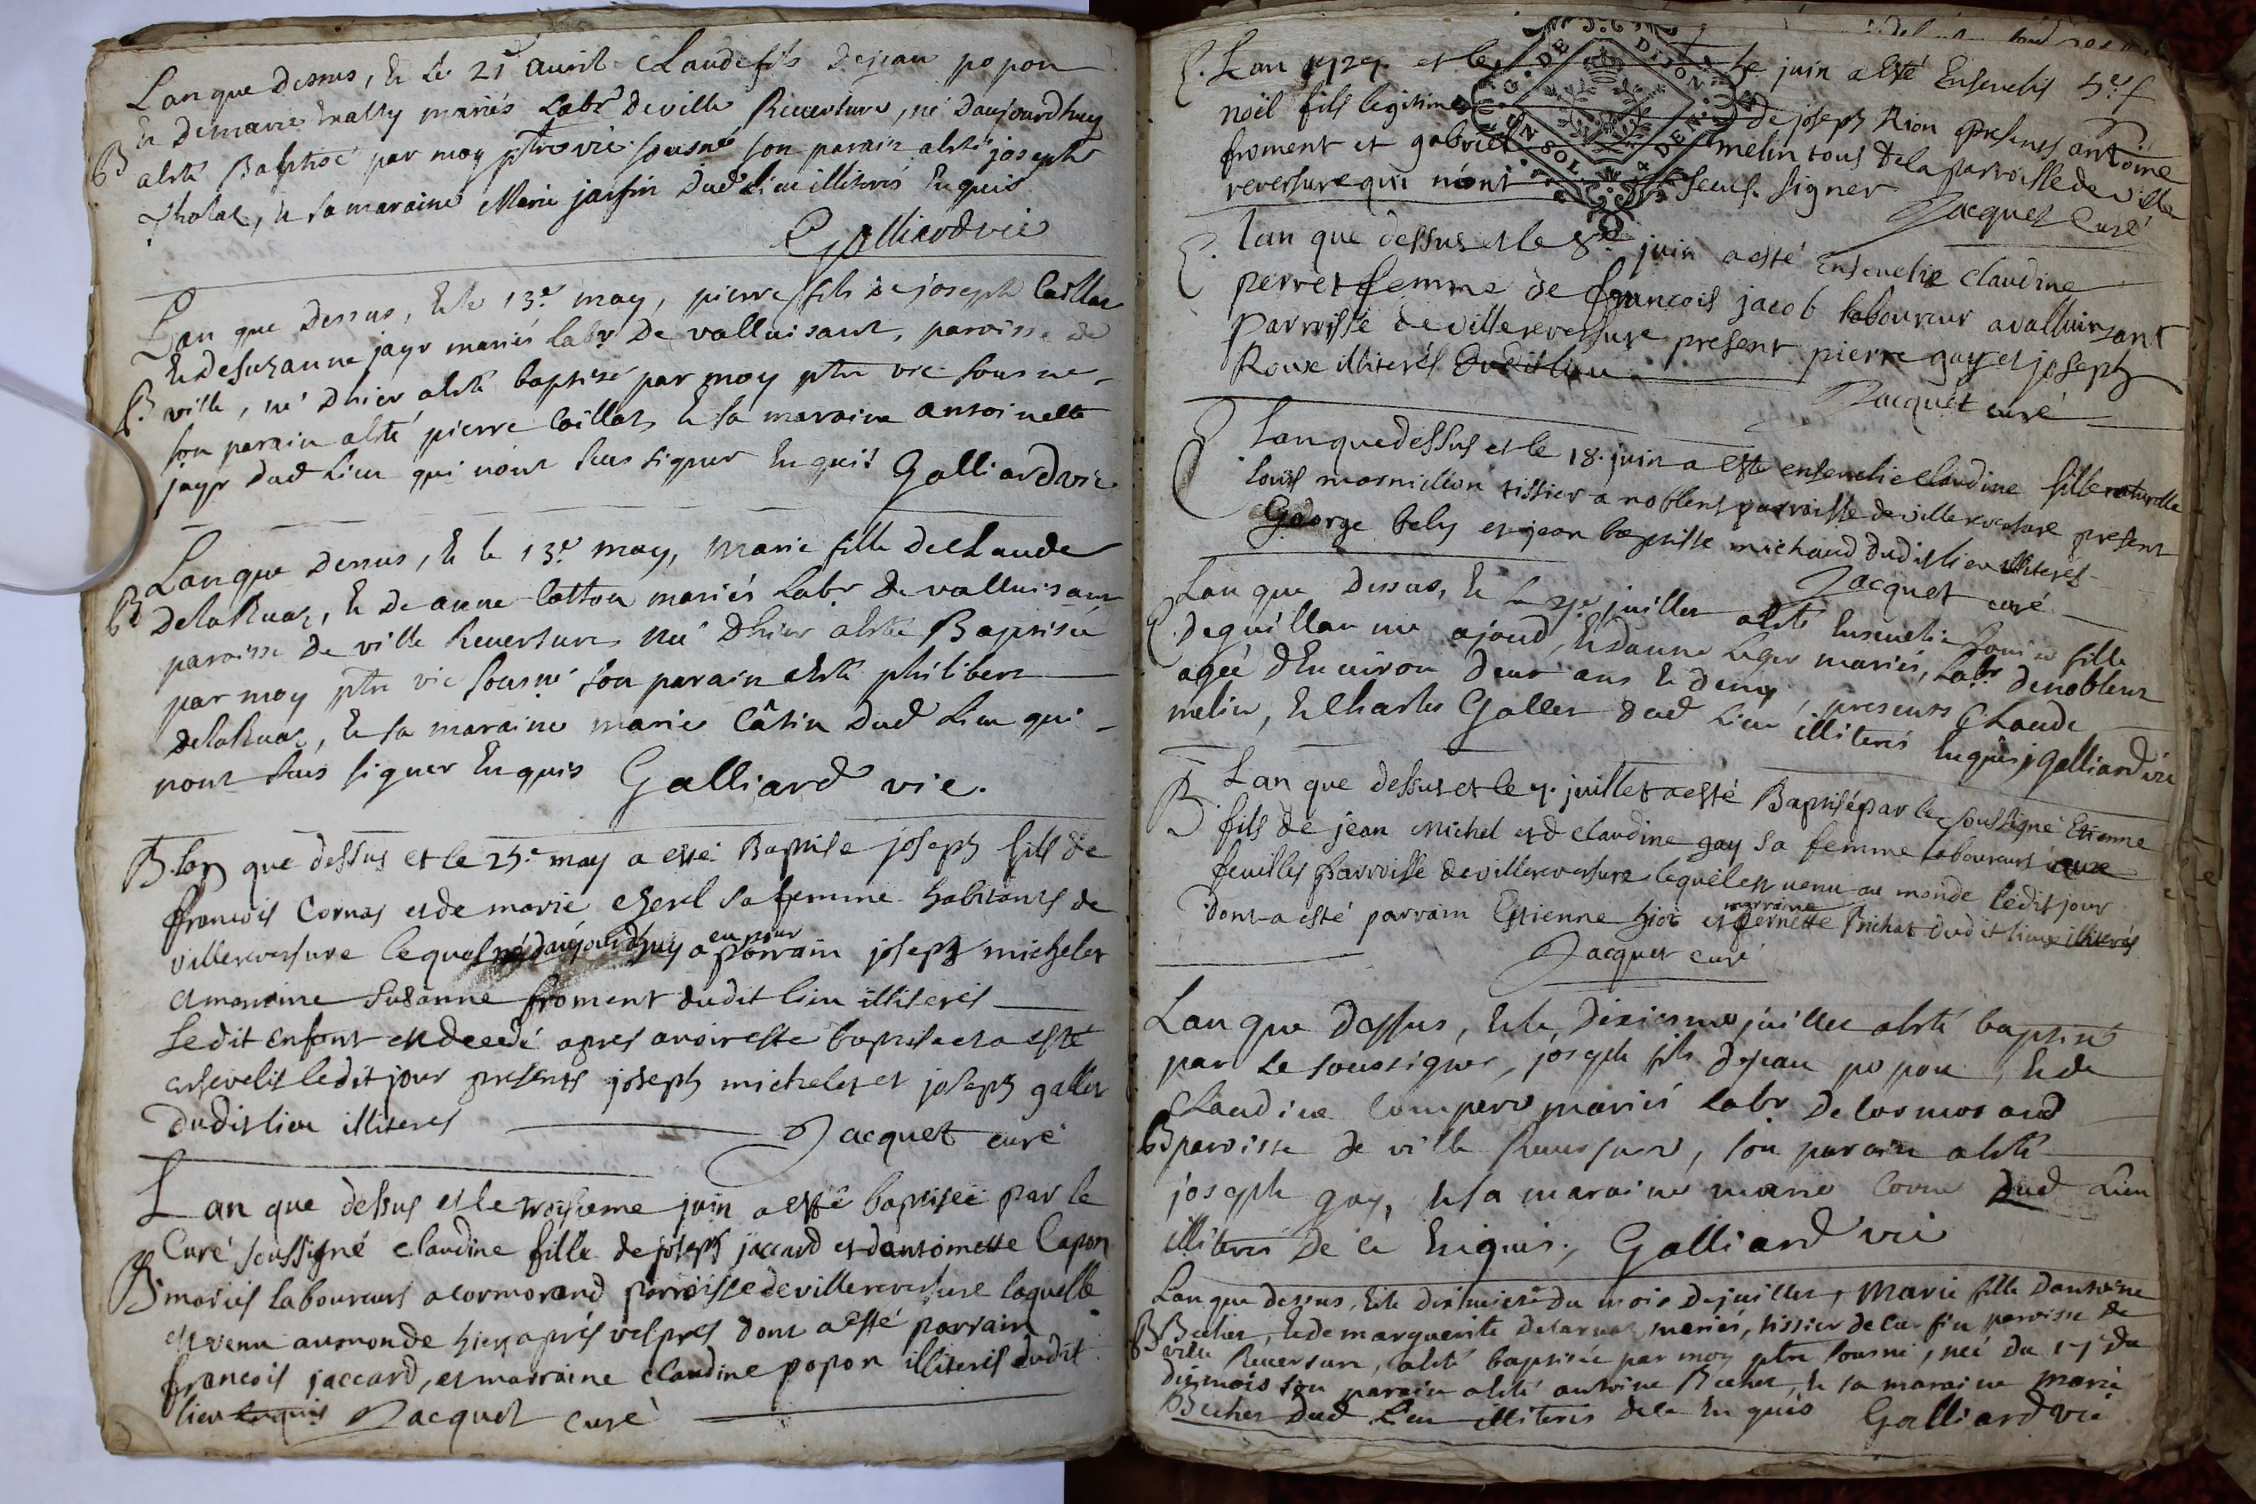 Lan que dessus, & le 21e auril Claude fils de jean popon
& de marie mariés Labr de ville Reuersure, né daujourdhuy
B
a esté Baptisé par moy ptre vic. sousné son parain a esté joseph
& sa maraine Marie janfin dud lieu illiterés Enquis
Galliard vic
Lan que dessus, & le 13e may, pierre fils de joseph Caillat
& de suzanne jayr mariés labr de valluisant, paroisse de
B
ville, né dhier a esté baptisé par moy ptre vic sousné
son parain a esté pierre Caillat & sa maraine antoinette
jayr dud Lieu qui nont sceu signer Enquis Galliard vic
Lan que dessus, & le 13e may, marie fille de Claude
B
delaRuaz, & de anne Cotton mariés Labr de valluisant
paroisse de ville Reuersure née dhier a esté Baptisée
par moy ptre vic sousné son parain a esté philibert
delaRuaz, & sa maraine marie Câtin dud Lieu qui
nont sceu signer Enquis Galliard vic.
B. lan que dessus et le 25e may a esté Baptise joseph fils de
francois Cornas et de marie sa femme habitants de
villereversure lequel né daujourdhuy a eu pour parrain joseph michelet
et marraine Susanne froment dudit lieu illiterés
Ledit enfant est decedé apres avoir esté baptisé et a esté
ensevelis ledit jour presents joseph michelet et joseph gallet
dudit lieu illiteres Jacquet curé
Lan que dessus et le troisieme juin a esté baptisée par le
Curé soussigné claudine fille de joseph jaccard et dantoinette Capon
B
mariés laboureurs a cormorand parroisse de villereversure laquelle
est venu au monde hier après vespres dont a esté parrain
francois jaccard, et marraine claudine popon illiterés dudit
lieu enquis Jacquet curé
E. Lan 1727 et le juin a esté Ensevelis
noël fils legitime de joseph Rion presents antoine
froment et gabriel melin tous de la parroisse de ville
reversure qui n'ont sceus signer Jacquet Curé
E. lan que dessus et le 8e juin a esté ensevelie claudine
perret femme de francois jacob laboureur a valluisant
Parroisse de villereversure present pierre gay et joseph
Roux illiterés dudit lieu
Jacquet curé
E
Lan que dessus et le 18. juin a esté ensevelie claudine fille naturelle
Louis marmillon tissier a noblens parroisse de villereversure present
George bely et jean baptiste michaud dudit lieu illiterés
Jacquet curé
Lan que dessus, & Le juillet a esté Enseuelie Louise fille
E. de guillaume ajoud, & danne Leger mariés, Labr de noblens
agée denuiron deux ans & demy, presents Claude
melin, & Charles Gallet dud Lieu illiterés Enquis Galliard vic
B
Lan que dessus et le 7. juillet a esté Baptisé par le soussigné Etienne
fils de jean michel et de claudine gay sa femme laboureurs aux
feuilles Parroisse de villereversure lequel est venu au monde ledit jour
dont a esté parrain Estienne et marraine pernette Prichat dudit lieu illiterés
Jacquet curé
Lan que dessus, & le dixiesme juillet a esté baptisé
par le soussigné, joseph fils de jean popon, & de
Claudine Compere mariés Labr de Cormorand
B
paroisse de ville Reuersure, son parain a esté
joseph gay, & sa maraine marie dud Lieu
illiterés de ce Enquis, Galliard vic
Lan que dessus, & le du mois de juillet, Marie fille dantoine
B
Becher, & de marguerite mariés, tissier de paroisse de
ville Reuersure, a esté baptisée par moy ptre sousné, née du 17 du
dit mois son parain a esté antoine Becher, & sa maraine marie
Becher dud Lieu illiterés de ce Enquis Galliard vic